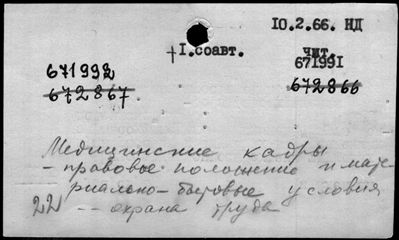 10.2.66. НД
+1.соавт.
чит.
671992
671991
672867.
672866
Медицинские кадры
- правовое положение и мате
риально-бытовые условия
22 -- охрана труда